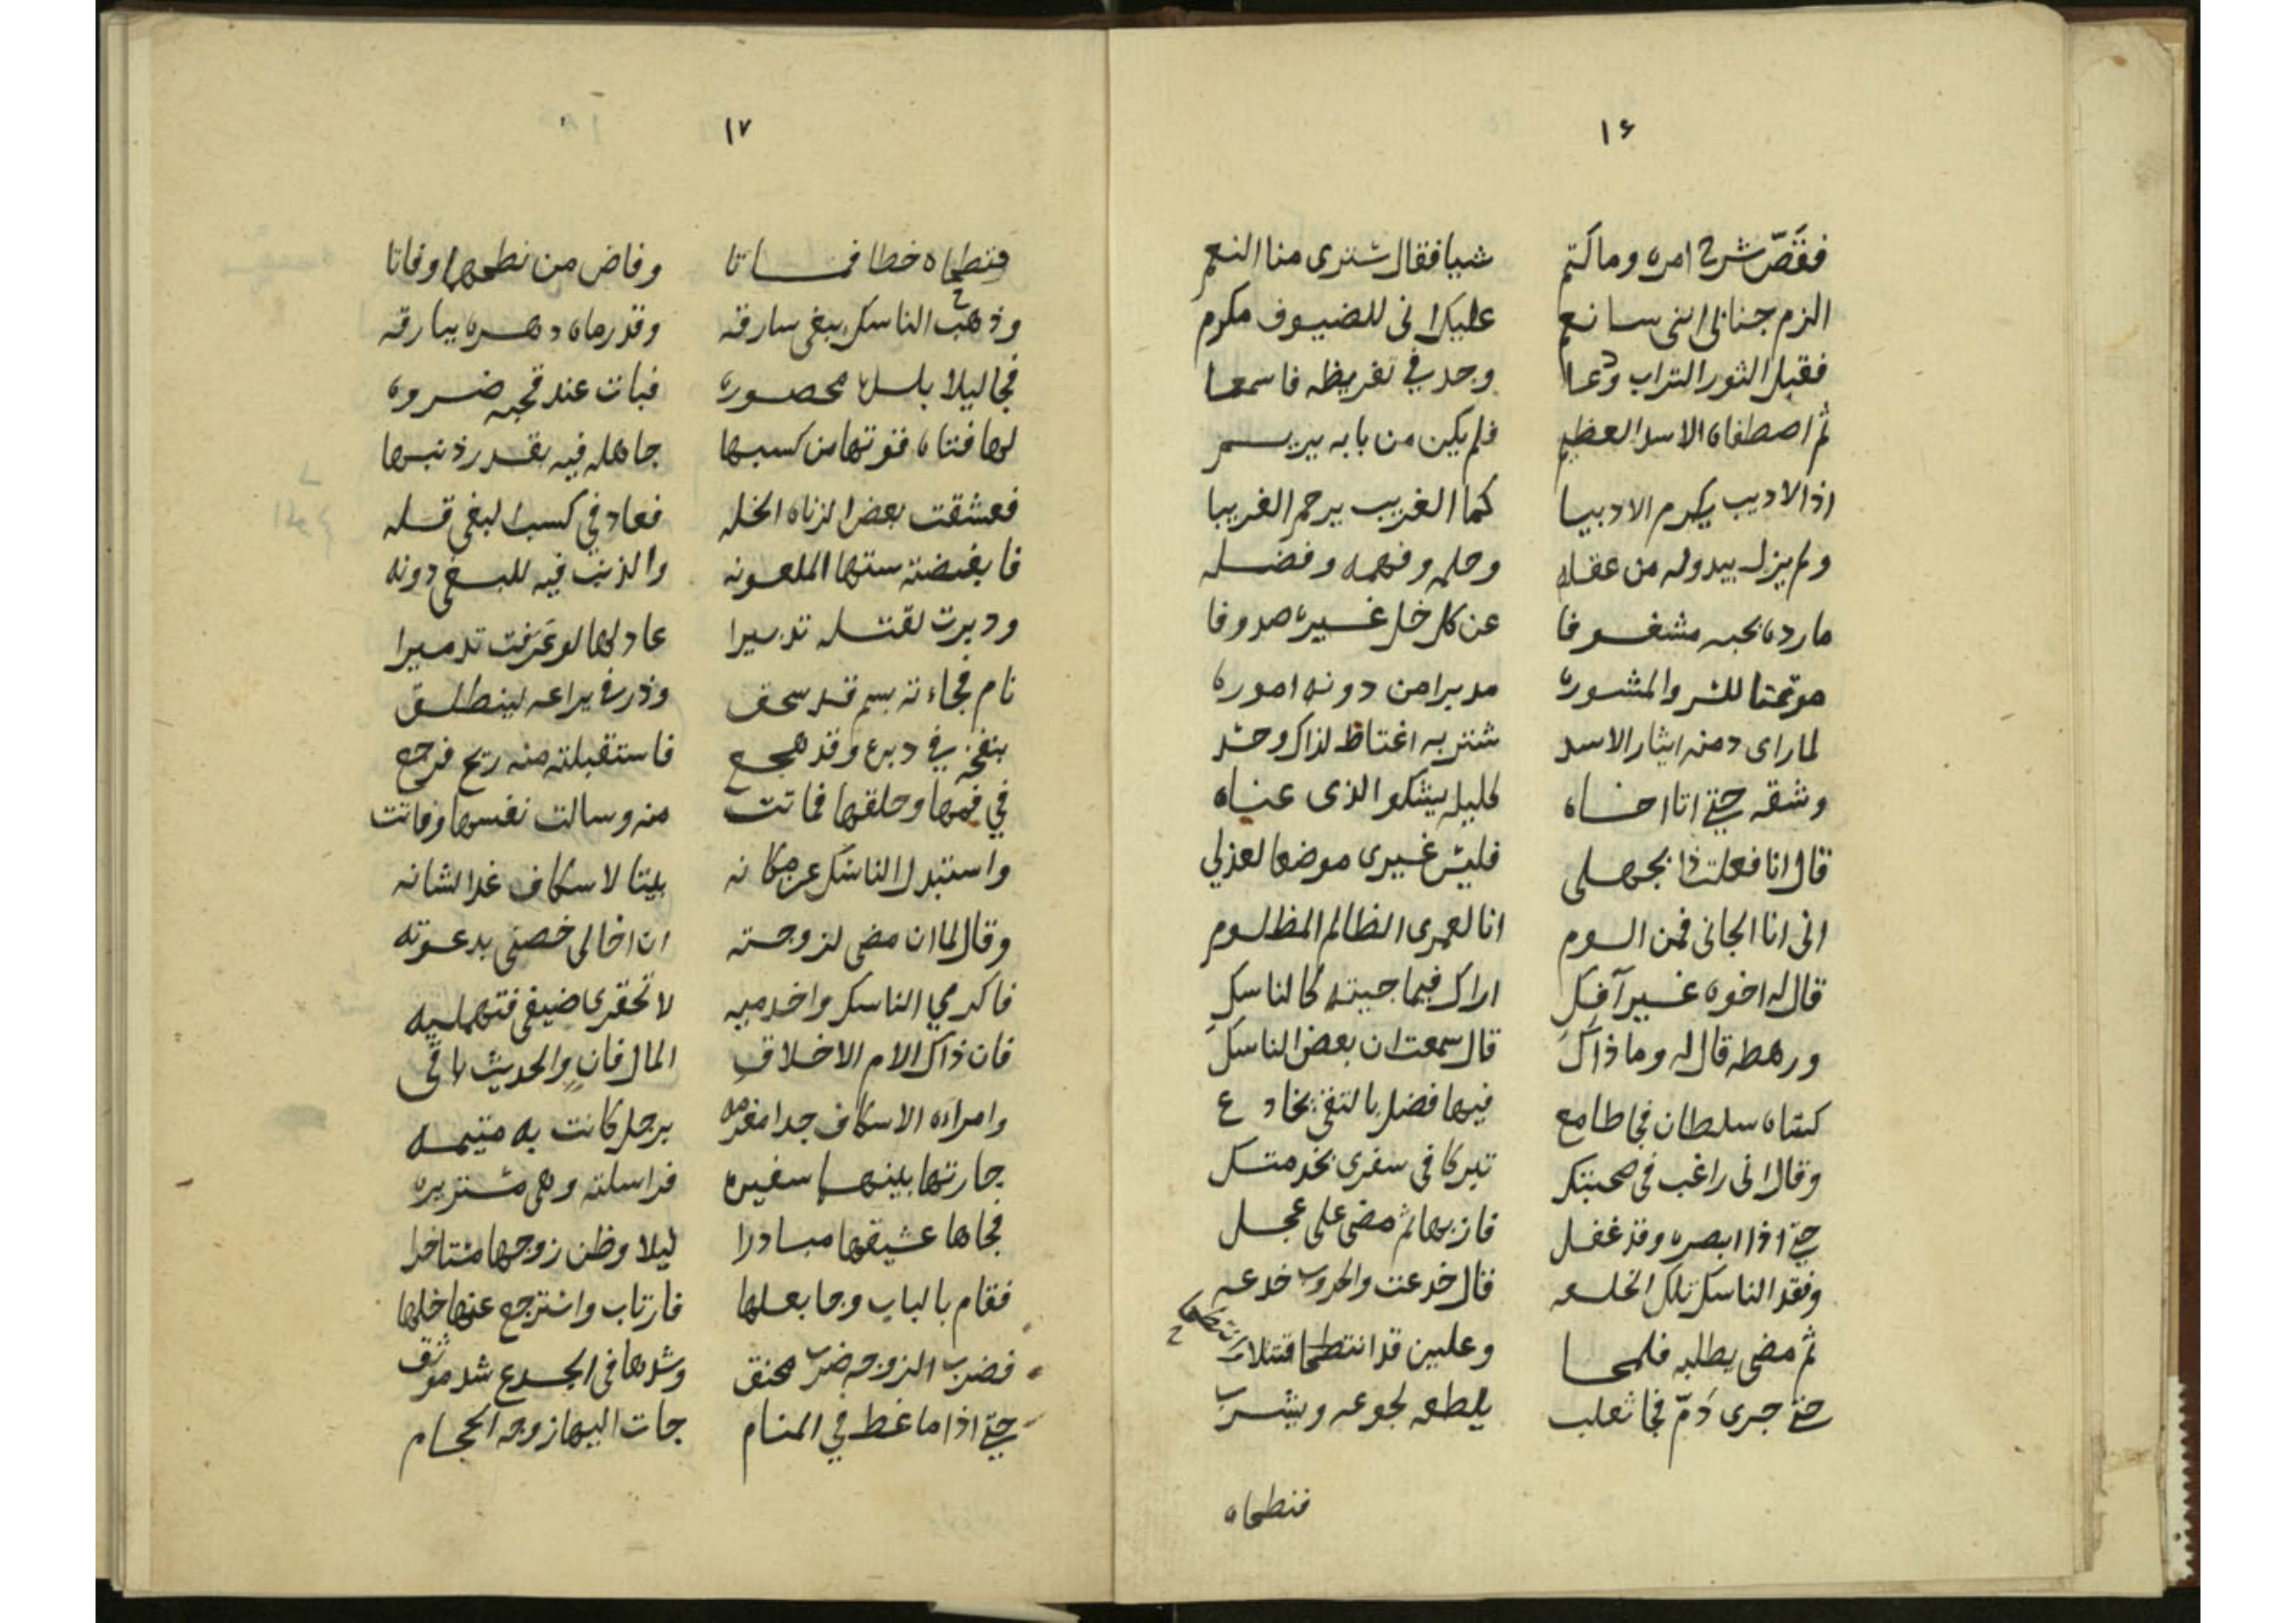 ١٦
فقصّ شرح امره وما كتم شيا فقال شترى منا النعم
الزم جنابى اننى سانعم عليك انى للضيوف مكرم
فقبل الثور التراب ودعا وجد في تفريظه فاسمعا
ثم اصطفاه الاسد العظيم فلم يكن من بابه يريم
اذ الاديب يكرم الاديبا كما الغريب يرحم الغريبا
ولم يزل يبدو له من عقله وحلمه وفهمه وفضله
ما رده بحبه مشغوفا عن كل خل غيره صدوفا
موتمنا للسر والمشوره مدبرا من دونه اموره
لما راى دمنه ايثار الاسد شنتر به اغتاظ لذاك وحسد
وشقه حتى اتا اخاه كليله يشكو الذى عناه
قال انا فعلت ذا بجهلى فليس غيرى موضعا لعذلي
انى انا الجانى فمن الوم انا لعمرى الظالم المظلوم
قال له اخوه غير آفك اراك فيما جيته كالناسك
ورهطه قال له وما ذاك قال سمعت ان بعض الناسك
كساه سلطان فجا طامع فيها فضل بالتقى يخادع
وقال انى راغب فى صحبتك تبركا فى سفرى بخدمتك
حتى اذا ابصره وقد غفل فاز بها ثم مضى على عجل
وفقد الناسك تلك الخلعه قال خدعت والحروب خدعه
ثم مضى يطلبه فلمحا وعلين قد انتطحا
حتى جرى دمّ فجا ثعلب يلطعه لجوعه ويشرب
فنطحاه
١٧
فنطحاه خطا فماتا وفاض من نطحهما وفاتا
وذهب الناسك يبغى سارقه وقد رماه دهره يبارقه
فجا ليلا محصوره فبات عند قحبه ضروره
لها فتاه قوتها من كسبها جاهله فيه بقدر ذنبها
فعشقت بعض الزناه الخله فعاد في كسب البغى قله
فابغضته ستها الملعونه والذنب فيه للبغى دونه
ودبرت لقتله تدبيرا عاد لها لو عَرَفت تدميرا
نام فجاءته بسم قد سحق وذر في يراعه لينطلق
بنفخه في دبره وقد هجع فاستقبلته منه ريح فرجع
في فمها وحلقها فماتت منه وسالت نفسها وفاتت
واستبدل الناسك عن مكانه بيتا لاسكاف غدا لشانه
وقال لما ان مضى لزوجته ان اخا لى خصنى بدعوته
فاكرمي الناسك واخدميه لا تحقرى ضيفى فتهمليه
فان ذاك الام الاخلاقِ المال فانٍ والحديث باقى
وامراه الاسكاف جدا مغرمه برجل كانت به متيمه
جارتها بينهما سفيره فراسلته وهى مستزيره
فجاها عشيقها مبادرا ليلا وظن زوجها متاخرا
فقام بالباب وجا بعلها فارتاب واسترجع عنها خلها
فضرب الزوجه ضرب محنق وشدها فى الجدع شد موثق
حتى اذا ما غط في المنام جات اليها زوجه الحجام